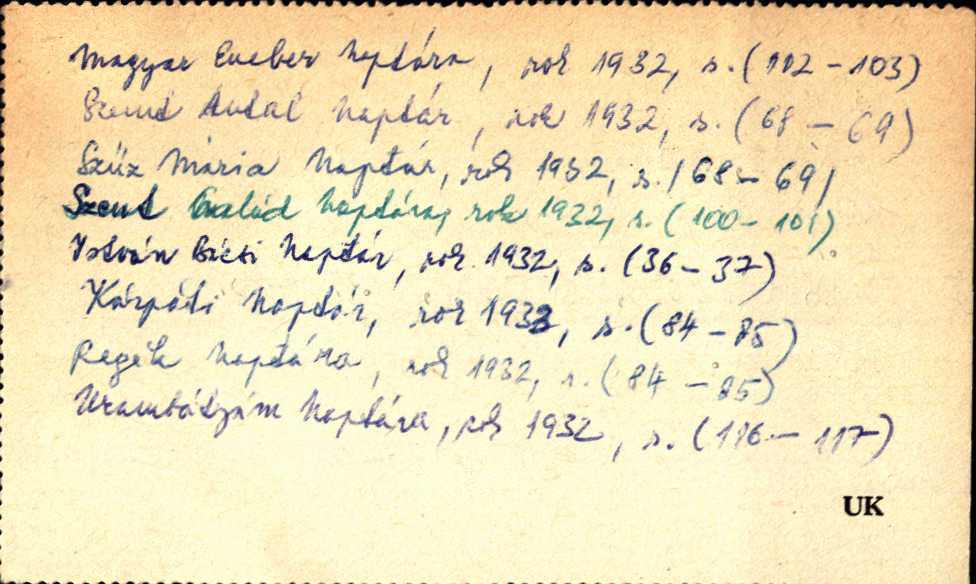 Magyar Ember Naptára, rok 1932, s. (102 - 103)
Szent Antal Naptár, rok 1932, s. (68 - 69)
Szüz Mária Naptár, rok 1932, s. (68 - 69)
Szent Család Naptára, rok 1932, s. (100 - 101)
István Bácsi Naptár, rok 1932, s. (36 - 37)
Kárpáti Naptár, rok 1932, s. (84 - 85)
Regék Naptára, rok 1932, s. (84 - 85)
Urambátyám Naptára, rok 1932, s. (116 - 117)
UK